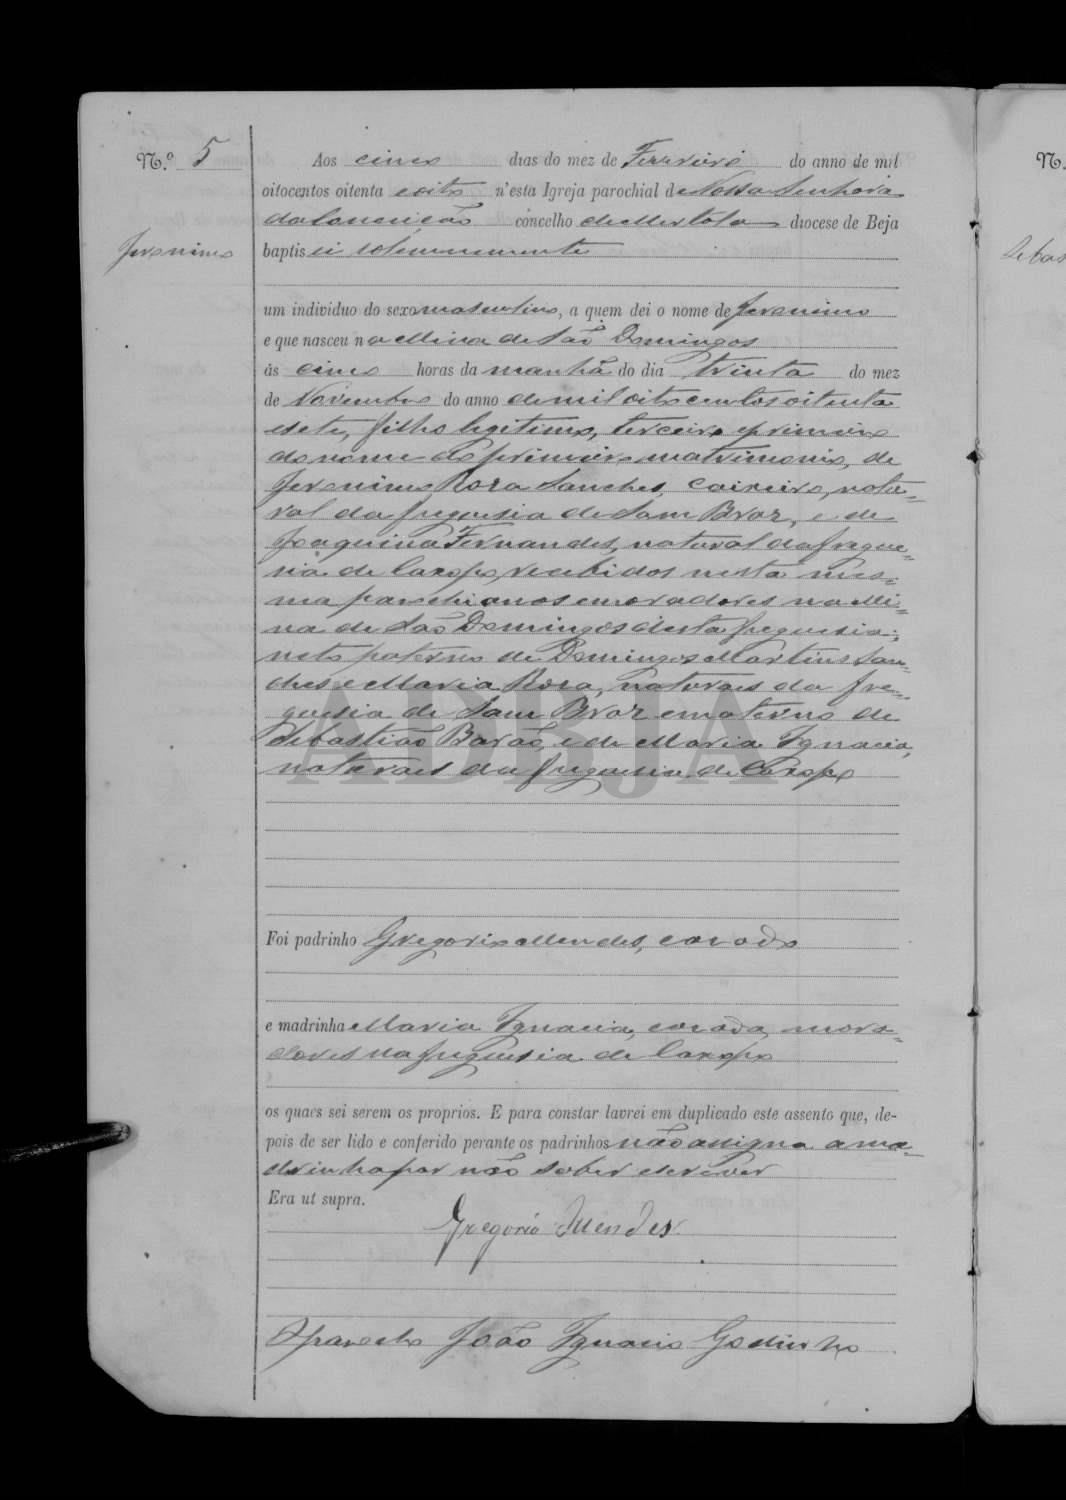 N.º 5
Aos cinco dias do mez de Fevreiro do anno de mil
oitocentos oitenta e oito n'esta Igreja parochial de Nossa Senhora
da Conceição concelho de Mertola diocese de Beja
Jeronimo
baptisei solemnemente
um individuo do sexo masculino, a quem dei o nome de Jeronimo
e que nasceu na Mina de São Domingos
ás cinco horas da manhã do dia trinta do mez
de Novembro do anno de mil oito centos oitenta
e sete, filho legitimo, terceiro e primeiro
do nome do primeiro matrimonio, de
Jeronimo Rosa Sanches, caixeiro, natu=
ral da freguesia de Sam Braz, e de
Joaquina Fernandes, natural da fregue=
sia de Caxopo, recebidos nesta mes=
ma parochianos e moradores na Mi=
na de São Domingos desta freguesia;
neto paterno de Domingos Martins San=
ches e Maria Rosa, naturaes da fre=
guesia de Sam Braz e materno de
Sebastião Barão, e de Maria Ignacia,
naturaes da freguesia de Caxopo
ADBJA
Foi padrinho Gregorio Mendes, casado
e madrinha Maria Ignacia, casada, mora=
dores na freguesia de Caxopo
os quaes sei serem os proprios. E para constar lavrei em duplicado este assento que, de-
pois de ser lido e conferido perante os padrinhos não assigna a ma=
drinha por não saber escrever
Era ut supra.
Gregorio Mendes.
O parocho João Ignacio Godinho
N.
Sebas